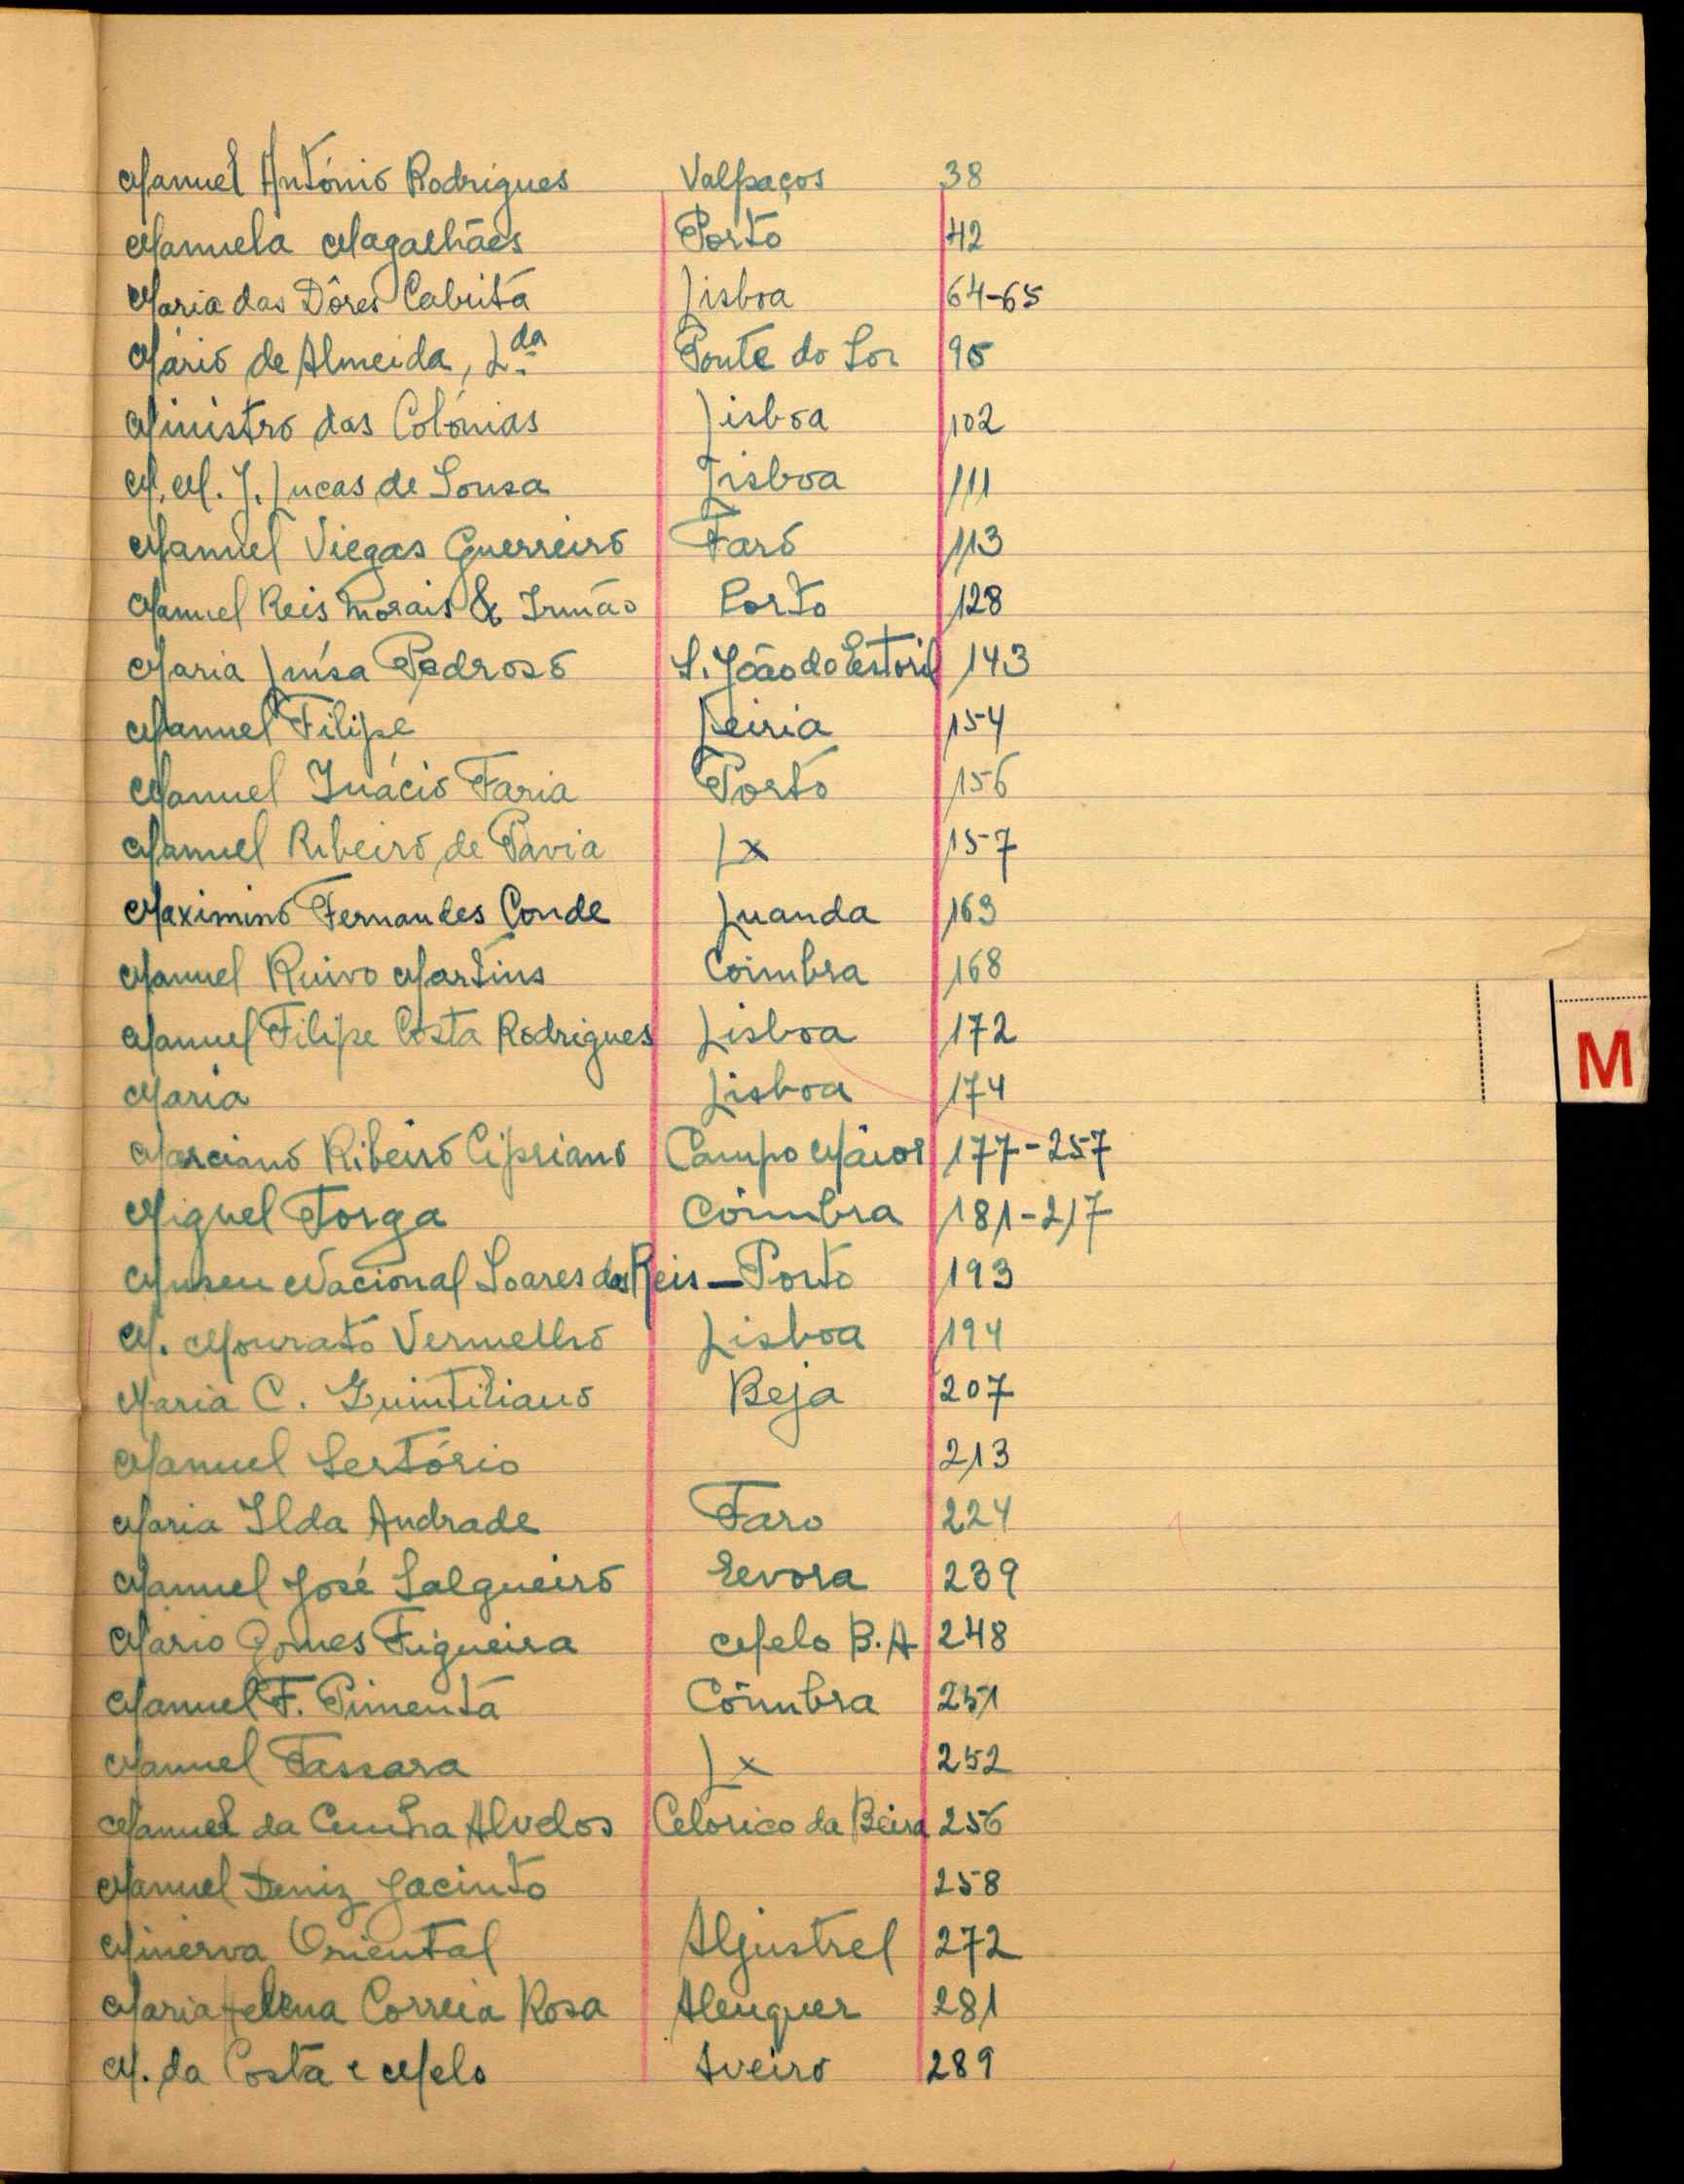 Manuel António Rodrigues Valpaços 38
Manuela Magalhães Porto 42
Maria das Dôres Cabrita Lisboa 64-65
Mário de Almeida, Lda Ponte do Sor 95
Ministro das Colónias Lisboa 102
M. M. J. Lucas de Sousa Lisboa 111
Manuel Viegas Guerreiro Faro 113
Manuel Reis Morais & Irmão Porto 128
Maria Luísa Pedroso S. João do Estoril 143
Manuel Filipe Leiria 154
Manuel Inácio Faria Porto 156
Manuel Ribeiro de Pavia Lx 157
Maximino Fernandes Conde Luanda 163
Manuel Ruivo Martins Coimbra 168
Manuel Filipe Costa Rodrigues Lisboa 172
Maria Lisboa 174
M
Marciano Ribeiro Cipriano Campo Maior 177-257
Miguel Torga Coimbra 181-217
Museu Nacional Soares dos Reis - Porto 193
M. Mourato Vermelho Lisboa 194
Maria C. Quintiliano Beja 207
Manuel Sertório 213
Maria Ilda Andrade Faro 224
Manuel José Salgueiro Evora 239
Mário Gomes Figueira Melo B.A 248
Manuel F. Pimenta Coimbra 251
Manuel Tassara Lx 252
Manuel da Cunha Alvelos Celorico da Beira 256
Manuel Deniz Jacinto 258
Minerva Oriental Aljustrel 272
Maria Helena Correia Rosa Alenquer 281
M. da Costa e Melo Aveiro 289